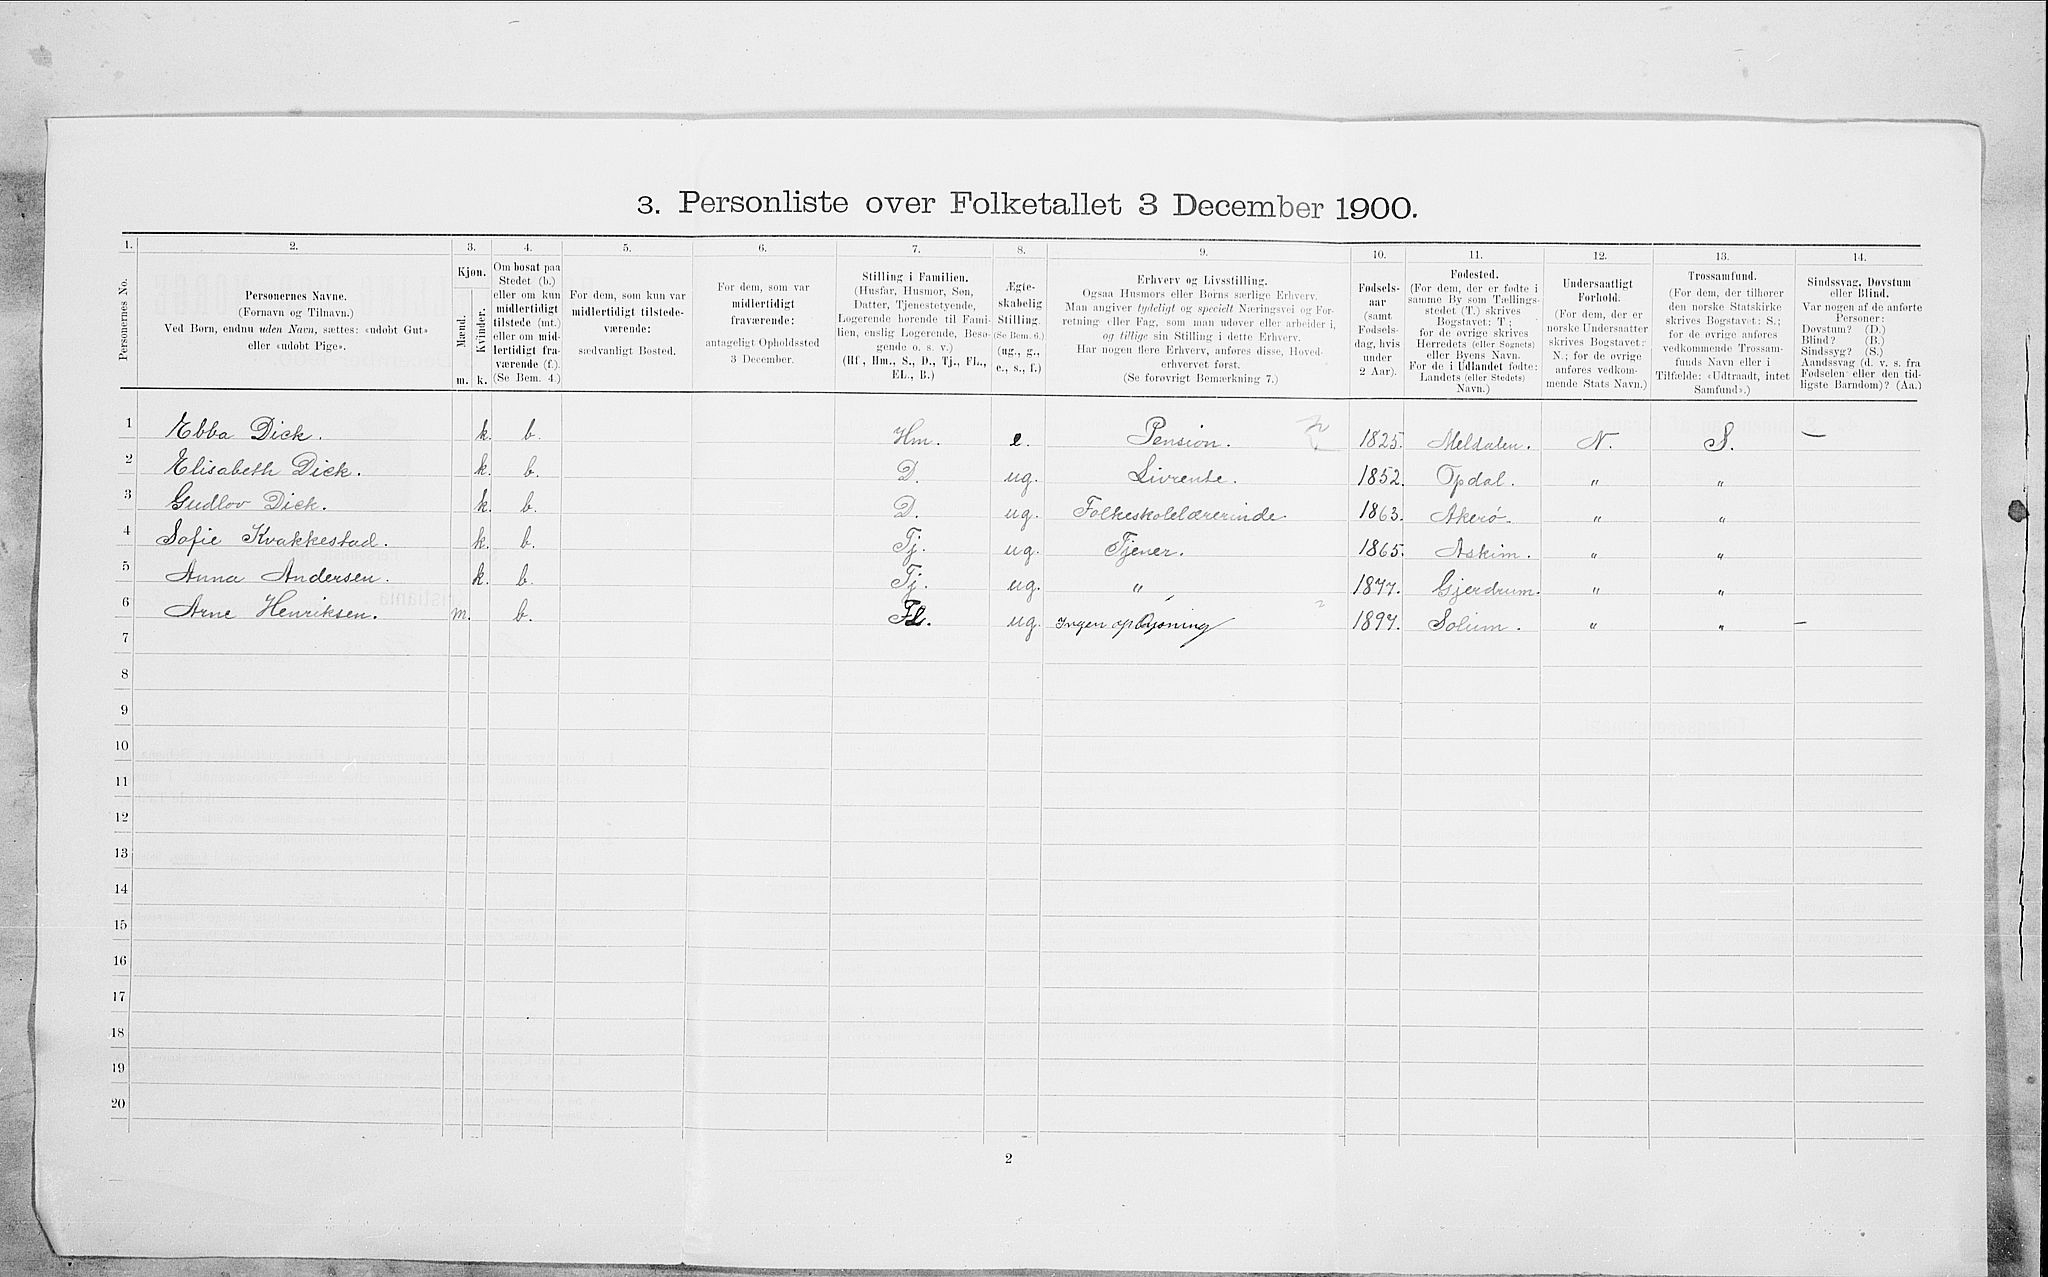 3. Personliste over Folketallet 3 December 1900.
1. 2. 3. 4. 5. 6. 7. 8. 9. 10. 11. 12. 13. 14.
Personernes No.
Personernes Navne.
(Fornavn og Tilnavn.)
Ved Børn, endnu uden Navn, sættes: «udøbt Gut»
eller «udøbt Pige».
Kjøn.
Mænd.
Kvinder.
m. k.
Om bosat paa
Stedet (b.)
eller om kun
midlertidigt
tilstede (mt.)
eller om mid-
lertidigt fra-
værende (f.)
(Se Bem. 4.)
For dem, som kun var
midlertidigt tilstede-
værende:
sædvanligt Bosted.
For dem, som var
midlertidigt
fraværende:
antageligt Opholdssted
3 December.
Stilling i Familien.
(Husfar, Husmor, Søn,
Datter, Tjenestetyende,
Logerende hørende til Fami-
lien, enslig Logerende, Besø-
gende o. s. v.)
(Hf., Hm., S., D., Tj., FL.,
EL., B.)
Ægte-
skabelig
Stilling.
(Se Bem. 6.)
(ug., g.,
e., s., f.)
Erhverv og Livsstilling.
Ogsaa Husmors eller Børns særlige Erhverv.
Man angiver tydeligt og specielt Næringsvei og For-
retning eller Fag, som man udøver eller arbeider i,
og tillige sin Stilling i dette Erhverv.
Har nogen flere Erhverv, anføres disse, Hoved-
erhvervet først.
(Se forøvrigt Bemærkning 7.)
Fødsels-
aar
(samt
Fødsels-
dag, hvis
under
2 Aar).
Fødested.
(For dem, der er fødte i
samme By som Tællings-
stedet (T.) skrives
Bogstavet: T;
for de øvrige skrives
Herredets (eller Sognets)
eller Byens Navn.
For de i Udlandet fødte:
Landets (eller Stedets)
Navn.)
Undersaatligt
Forhold.
(For dem, der er
norske Undersaatter
skrives Bogstavet:
N.; for de øvrige
anføres vedkom-
mende Stats Navn.)
Trossamfund.
(For dem, der tilhører
den norske Statskirke
skrives Bogstavet: S.;
for de øvrige anføres
vedkommende Trossam-
funds Navn eller i
Tilfælde: «Udtraadt, intet
Samfund».)
Sindssvag, Døvstum
eller Blind.
Var nogen af de anførte
Personer:
Døvstum? (D.)
Blind? (B.)
Sindssyg? (S.)
Aandssvag (d. v. s. fra
Fødselen eller den tid-
ligste Barndom)? (Aa.)
1 Ebba Dick. k. b. Hm. e. Pension. 1825. Meldalen. N. S. —
2 Elisabeth Dick. k. b. D. ug. Livrente. 1852. Opdal. " "
3 Gudlov Dick. k. b. D. ug. Folkeskolelærerinde 1863. Akerø. " "
4 Sofie Kvakkestad. k. b. Tj. ug. Tjener. 1865. Askim. " "
5 Anna Andersen. k. b. Tj. ug. " 1877. Gjerdrum. " "
6 Arne Henriksen. m. b. FL. ug. Ingen oplysning 1897. Solum. " " —
7
8
9
10
11
12
13
14
15
16
17
18
19
20
2